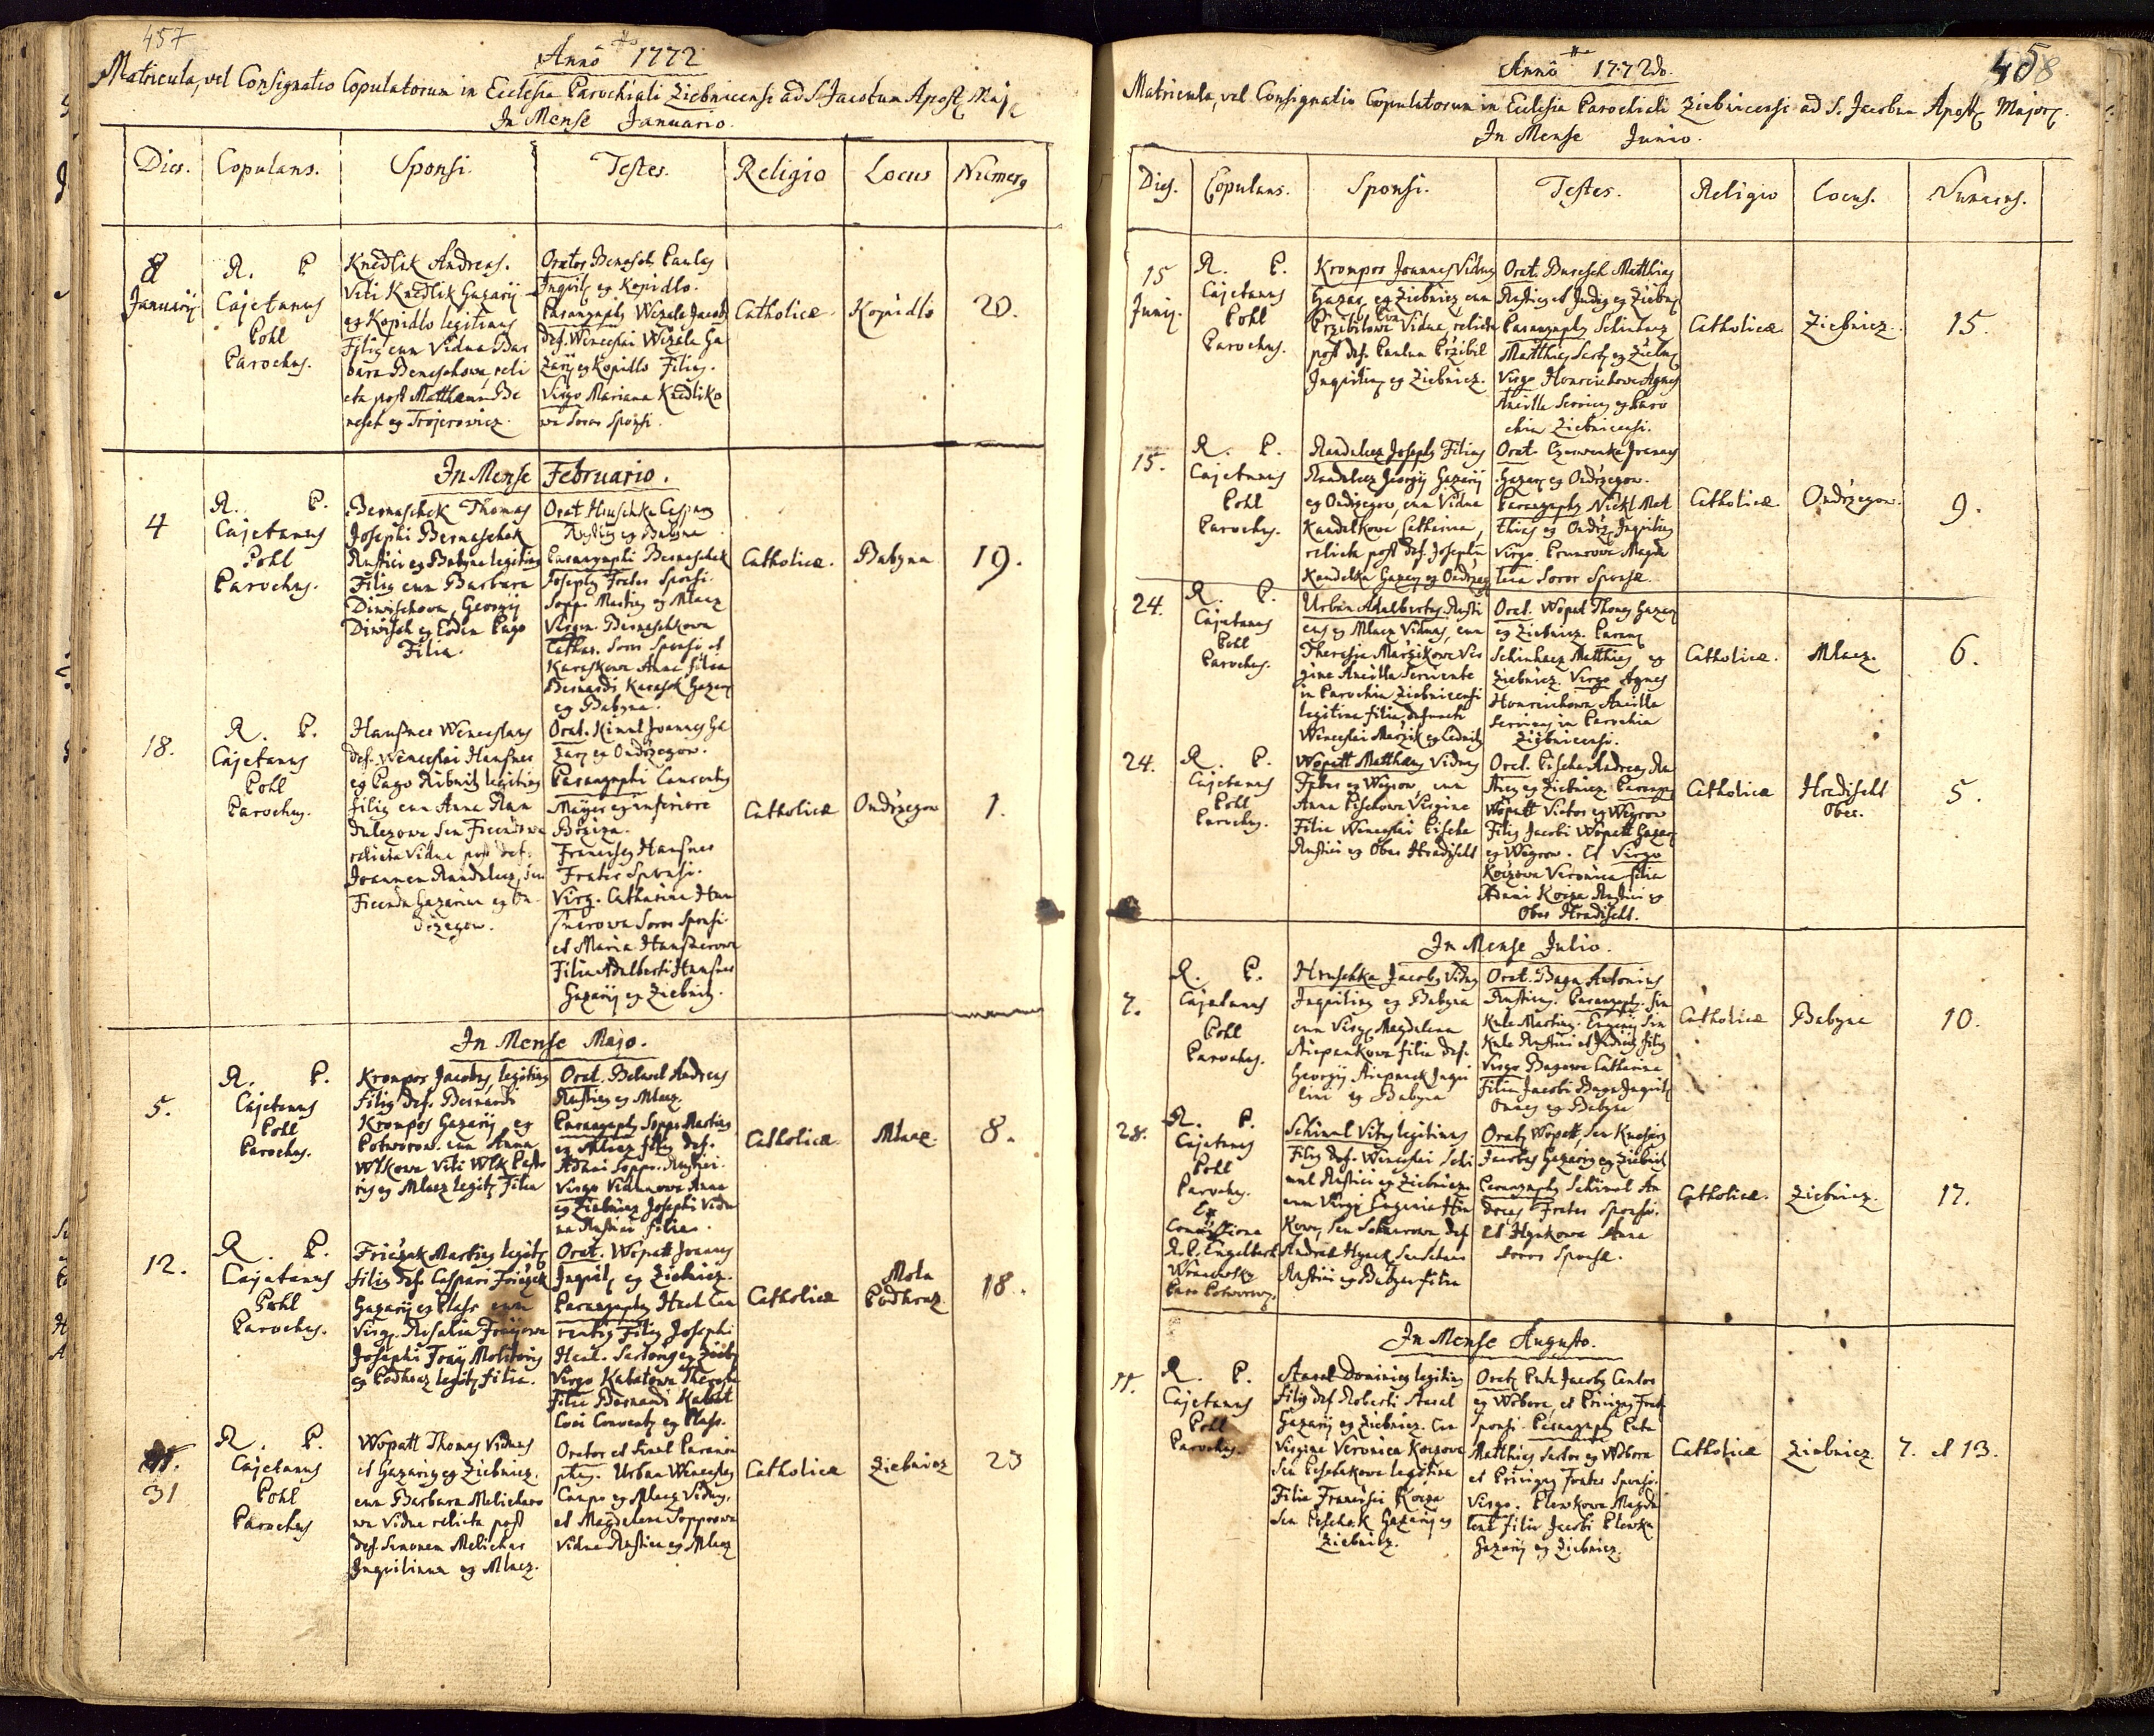 457
Anno 1772
Matricula, vel Consignatio Copulatorum in Ecclesia Parochiali Ziebnicensi ad S. Jacobum Apost. Maj.
In Mense Januario.
Dies. Copulans. Sponsi. Testes. Religio Locus Numerg
8 Januarij
R. P. Cajetanus Pohl Parochus.
Knedlik Andreas.
Viti Knedlik Gazarij
ex Kopidlo legitimus
Filig cum Vidua Bar
bara Beneschowa, reli
cta post Matthaeum Be
nesch ex Trojerowicz.
Orator Benesch Paulus
Inquil. ex Kopidlo.
Paranymph. Wezale Jacob
def. Wenceslai Wezale Ga
zarij ex Kopidlo Filius.
Virgo Mariana Knedliko
wa Soror Sponsi.
Catholicae Kopidlo 20.
In Mense Februario.
4
R. P.
Cajetanus
Pohl
Parochus.
Bernaschek Thomas
Josephi Bernaschek
Rustici ex Babyna legitimus
Filig cum Barbara
Diwischowa, Georgij
Diwisch ex Pago
Filia.
Orat. Hruschka Caspar
Rusticg ex Babyna
Paranymphi Bernaschek
Josephg Frater Sponsi.
Sopps Marting ex Mlacz
Virgin. Bernaschkowa
Cathar. Soror Sponsi et
Karaskowa Anna filia
Bernardi Karasek Gazarij
ex Babyna.
Catholicae. Babyna 19.
18.
R. P.
Cajetanus
Pohl
Parochus.
Hansner Wenceslaus
def. Wenceslai Hansner
ex Pago Ribnitz legitimus
filig cum Anna Ran
dulezowa
relicta Vidua post def.
Joannem Randulecz, seu
Gazarium ex On
drzegow.
Orat. Joannes Ga
zarg ex Ondrzegow.
Paranymphi Laurentius
Mayer ex inferiore
Brziza.
Franciscg Hansner
Frater Sponsi.
Virg. Catharina Han
snerowa Soror Sponsi.
et Maria Hansnerowa
Filia Adalberti Hansner
Gazarij ex Ziebnitz.
Catholicae Ondrzegow 1.
In Mense Majo.
5.
R. P.
Cajetanus
Pohl
Parochus.
Krompos Jacobus, legitimus
Filig def. Bernardi
Krompos Gazarij ex
Potworow. cum Anna
Wlkowa Viti Wlk Pasto
ris ex Mlacz legit. Filia
Orat. Andreas
Rusticg ex Mlacz.
Paranymphg Sopps Marting
ex Mlacz filig def.
Adami Sopps. Rustici.
Virgo Vidunowa Anna
ex Ziebnicz Josephi Vidu
na Rustici filia.
Catholicae Mlacz. 8.
12.
R. P.
Cajetanus
Pohl
Parochus.
Friczek Marting legit.
filig def. Caspari Friczek
Gazarij ex Plass cum
Virg. Rosalia
Josephi Molitoris
ex Podhraz legit. filia.
Orat. Wopatt Joannes
Inquil. ex Ziebnicz.
Paranymphg Hach Lau
rentig Filig Josephi
Virgo Kabatowa Theresia
Filia Bernardi Kabat
Conventg ex Plass.
Catholicae Mola Podhraz 18.
31
R. P.
Cajetanus
Pohl
Parochus
Wopatt Thomas Viduus
et Gazarig ex Ziebnicz.
cum Barbara Melicharo
wa Vidua relicta post
def. Simonem Melichar
Inquilinum ex Mlacz.
Orator et simul Paranym
phus. Urban Wenceslaus
ex Mlacz Viduus.
et Magdalena Soppsowa
Vidua Rustica ex Mlacz
Catholicae Ziebnicz 23
458
Anno 1772do.
Matricula, vel Consignatio Copulatorum in Ecclesia Parochiali Ziebnicensi ad S. Jacobum Apost. Major.
In Mense Junio.
Dies. Copulans. Sponsi. Testes. Religio Locus. Numerus.
15 Junij.
R. P.
Cajetanus
Pohl
Parochus.
Krompos Joannes Viduus
Gazar. ex Ziebnicz cum
Przibilowa Vidua, relicta
post def. Paulum Przibil
Inquilin. ex Ziebnicz.
Orat. Buresch Matthias
Rusticg et Judex ex Ziebn.
Paranymphg
Matthias ex Ziebn.
Virgo Honzeichowa Agnes
Ancilla serviens ex Paro
chia Ziebnicensi.
Catholicae Ziebnicz. 15.
15.
R. P.
Cajetanus
Pohl
Parochus.
Randulecz Josephg Filius
Randulecz Georgij Gazarij
ex Ondrzegow, cum Vidua
Kandelkowa Catharina,
relicta post def. Josephum
Kandelka Gazar. ex Ondrzeg
Orat. Czerwenka Joannes
Gazar. ex Ondrzegow.
Paranymphg Nickl Mat
thias ex Ondrz. Inquiling
Virgo Brunerowa Magda
lena Soror Sponsae.
Catholicae. Ondrzegow. 9.
24.
R. P.
Cajetanus
Pohl
Parochus.
Urban Adalbertus Rusti
cus ex Mlacz Viduus, cum
Theresia Marzikowa Vir
gine Ancilla serviente
in Parochia Ziebnicensi
legitima filia defuncti
Wenceslai Marzik ex Lednitz
Orat. Wopat Thomas Gazar.
ex Ziebnicz. Paran.
Matthias ex
Ziebnicz. Virgo Agnes
Honzeichowa Ancilla
serviens in Parochia
Ziebnicensi.
Catholicae. Mlacz. 6.
24.
R. P.
Cajetanus
Pohl
Parochus.
Wopatt Matthaeus Viduus
Faber ex Wegrow, cum
Anna Pischowa Virgine
Filia Wenceslai Pischa
Rustici ex Ober Hradischt
Orat. Pischa Andreas Ru
sticg ex Ziebnicz. Paranym.
Wopatt Victor ex Wegrow
Filig Jacobi Wopatt Gazar.
ex Wegrow. Et Virgo
Koczowa Veronica filia
Adami Rustici ex
Ober Hradischt.
Catholicae Hradischt Ober. 5.
In Mense Julio.
7.
R. P.
Cajetanus
Pohl
Parochus.
Hruschka Jacobg Viduus
Inquiling ex Babyna
cum Virg. Magdalena
Stiepankowa filia def.
Georgij Stiepanek Inqui
lini ex Babyna
Orat. Baga Antonius
Rusticus. Paranymph. Sin
kule Marting. Sin
kule Rustici et Judicis filig
Virgo Bagowa Catharina
Filia Jacobi Baga Inquil.
omnes ex Babyna
Catholicae Babyna 10.
28.
R. P.
Cajetanus
Pohl
Parochus.
Ex
Commissione
R. P. Engelberti
Schimel Vitus legitimus
Filig def. Wenceslai Schi
mel Rustici ex Ziebnicz.
cum Virg. Eugenia Hin
kowa, seu
Andreae Hynek
Rustici ex Babyna filia
Orat. Wopatt, seu
Jacobus Gazarig ex Ziebnicz
Paranymphg Schimel An
dreas Frater Sponsi.
Et Hynkowa Anna
Soror Sponsae.
Catholicae. Ziebnicz. 17.
In Mense Augusto.
11.
R. P.
Cajetanus
Pohl
Parochus.
Dominicg legitimus
filig def. Roberti
Gazarij ex Ziebnicz. Cum
Virgine Veronica Koczowa
seu Peschakowa legitima
Filia Francisci Kocza
seu Peschak Gazarij ex
Ziebnicz.
Orat. Puta Jacobg Cantor
ex Wobora, et
Sponsi. Paranymphg Puta
Matthias Sartor ex Wobora
et Frater Sponsi.
Virgo. Plewkowa Magda
lena filia Jacobi Plewka
Gazarij ex Ziebnicz.
Catholicae Ziebnicz 7. et 13.